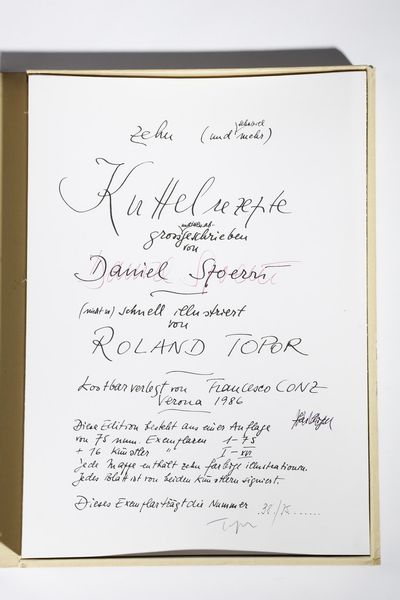 zehn (und mehr)
Kuttelrezepte
grossgeschrieben
von
Daniel Spoerri
(nicht zu) schnell illustriert
von
ROLAND TOPOR
kostbar verlegt von Francesco CONZ
Verona 1986
Diese Edition besteht aus einer Auflage
von 75 num. Exemplaren 1-75
+ 16 Künstler " I-XVI
jede Mappe enthält zehn farbige illustrationen.
Jedes Blatt ist von beiden Künstlern signiert.
Dieses Exemplar trägt die Nummer 38/75
Topor